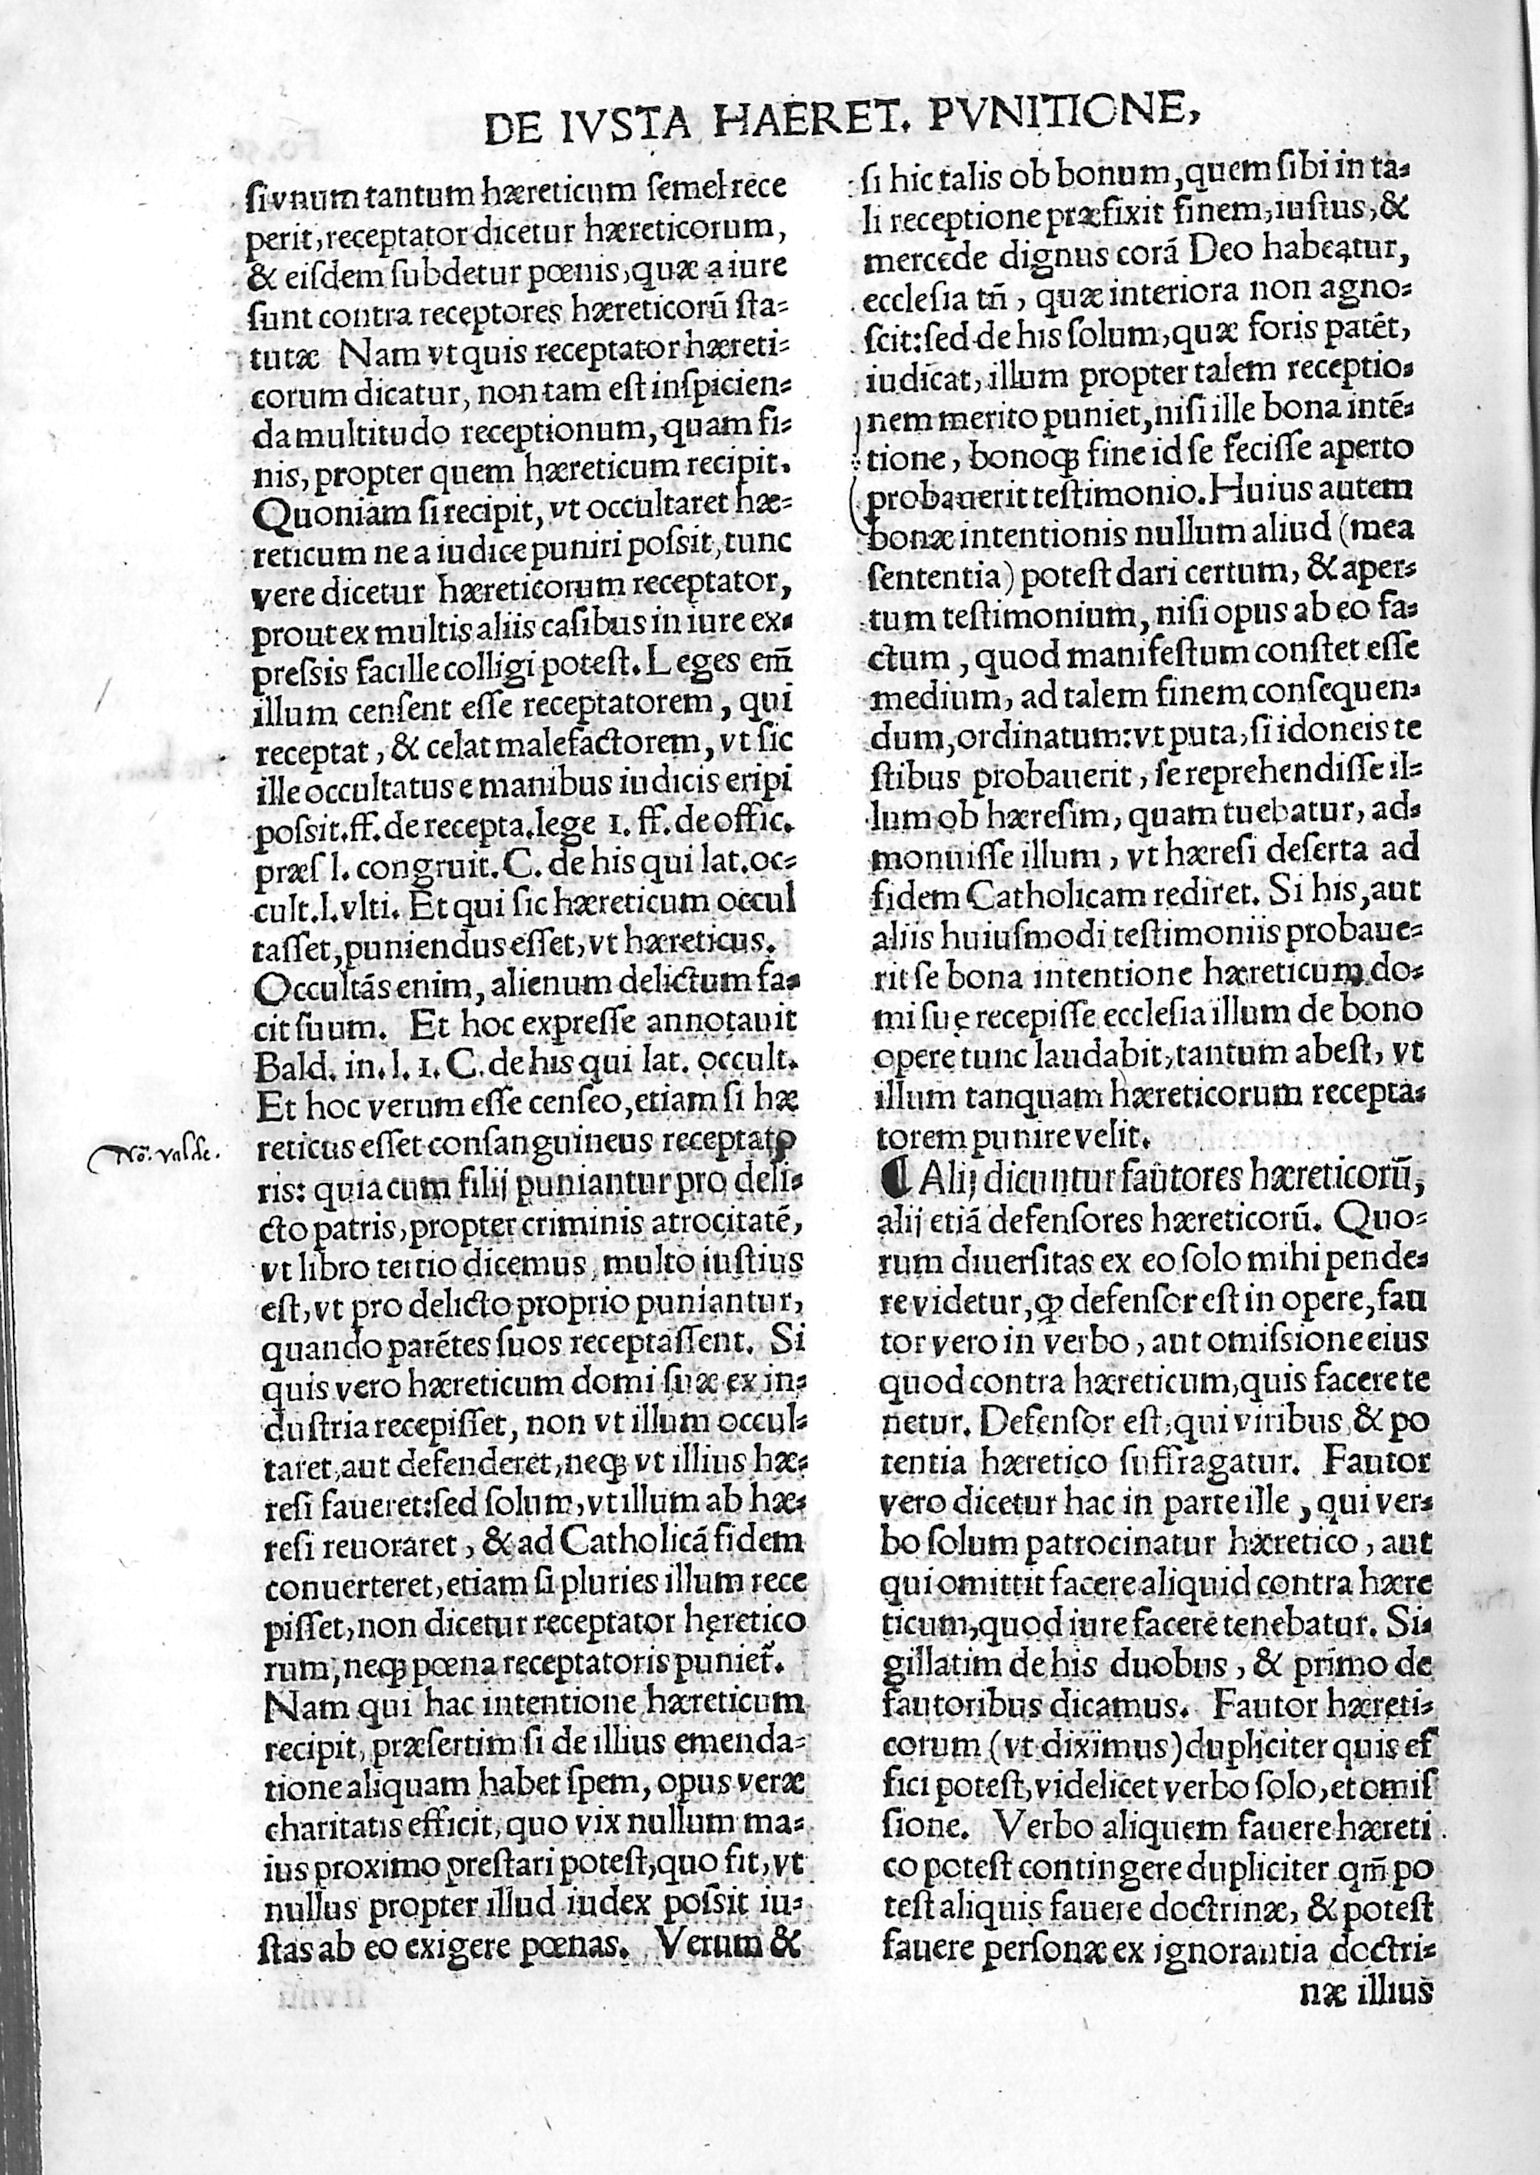 DE IVSTA HAERET. PVNITIONE,
si vnum tantum hæreticum semel rece
perit, receptator dicetur hæreticorum,
& eisdem subdetur pœnis, quæ a iure
sunt contra receptores hæreticorũ sta-
tutæ Nam vt quis receptator hæreti-
corum dicatur, non tam est inspicien-
da multitudo receptionum, quam fi-
nis, propter quem hæreticum recipit.
Quoniam si recipit, vt occultaret hæ-
reticum ne a iudice puniri possit, tunc
vere dicetur hæreticorum receptator,
prout ex multis aliis casibus in iure ex-
pressis facille colligi potest. Leges em̃
illum censent esse receptatorem, qui
receptat, & celat malefactorem, vt sic
ille occultatus e manibus iudicis eripi
possit. ff. de recepta. lege 1. ff. de offic.
præs l. congruit. C. de his qui lat. oc-
cult. l. vlti. Et qui sic hæreticum occul
tasset, puniendus esset, vt hæreticus.
Occultãs enim, alienum delictum fa-
cit suum. Et hoc expresse annotauit
Bald. in. l. 1. C. de his qui lat. occult.
Et hoc verum esse censeo, etiam si hæ
No. valde.
reticus esset consanguineus receptato
ris: quia cum filij puniantur pro deli-
cto patris, propter criminis atrocitatẽ,
vt libro tertio dicemus, multo iustius
est, vt pro delicto proprio puniantur,
quando parẽtes suos receptassent. Si
quis vero hæreticum domi suæ ex in-
dustria recepisset, non vt illum occul-
taret, aut defenderet, neqꝫ vt illius hæ-
resi faueret: sed solum, vt illum ab hæ-
resi reuoraret, & ad Catholicã fidem
conuerteret, etiam si pluries illum rece
pisset, non dicetur receptator hęretico
rum, neqꝫ pœna receptatoris puniet᷑.
Nam qui hac intentione hæreticum
recipit, præsertim si de illius emenda-
tione aliquam habet spem, opus veræ
charitatis efficit, quo vix nullum ma-
ius proximo prestari potest, quo fit, vt
nullus propter illud iudex possit iu-
stas ab eo exigere pœnas. Verum &
si hic talis ob bonum, quem sibi in ta-
li receptione præfixit finem, iustus, &
mercede dignus corã Deo habeatur,
ecclesia tñ, quæ interiora non agno-
scit: sed de his solum, quæ foris patẽt,
iudicat, illum propter talem receptio-
nem merito puniet, nisi ille bona intẽ-
tione, bonoqꝫ fine id se fecisse aperto
probauerit testimonio. Huius autem
bonæ intentionis nullum aliud (mea
sententia) potest dari certum, & aper-
tum testimonium, nisi opus ab eo fa-
ctum, quod manifestum constet esse
medium, ad talem finem consequen-
dum, ordinatum: vt puta, si idoneis te
stibus probauerit, se reprehendisse il-
lum ob hæresim, quam tuebatur, ad-
monuisse illum, vt hæresi deserta ad
fidem Catholicam rediret. Si his, aut
aliis huiusmodi testimoniis probaue-
rit se bona intentione hæreticum do-
mi suę recepisse ecclesia illum de bono
opere tunc laudabit, tantum abest, vt
illum tanquam hæreticorum recepta-
torem punire velit.
¶ Alij dicuntur fautores hæreticorũ,
alij etiã defensores hæreticorũ. Quo-
rum diuersitas ex eo solo mihi pende-
re videtur, ꝙ defensor est in opere, fau
tor vero in verbo, aut omissione eius
quod contra hæreticum, quis facere te
netur. Defensor est, qui viribus & po
tentia hæretico suffragatur. Fautor
vero dicetur hac in parte ille, qui ver-
bo solum patrocinatur hæretico, aut
qui omittit facere aliquid contra hære
ticum, quod iure facere tenebatur. Si-
gillatim de his duobus, & primo de
fautoribus dicamus. Fautor hæreti-
corum (vt diximus) dupliciter quis ef
fici potest, videlicet verbo solo, et omis
sione. Verbo aliquem fauere hæreti
co potest contingere dupliciter qm̃ po
test aliquis fauere doctrinæ, & potest
fauere personæ ex ignorantia doctri-
næ illius